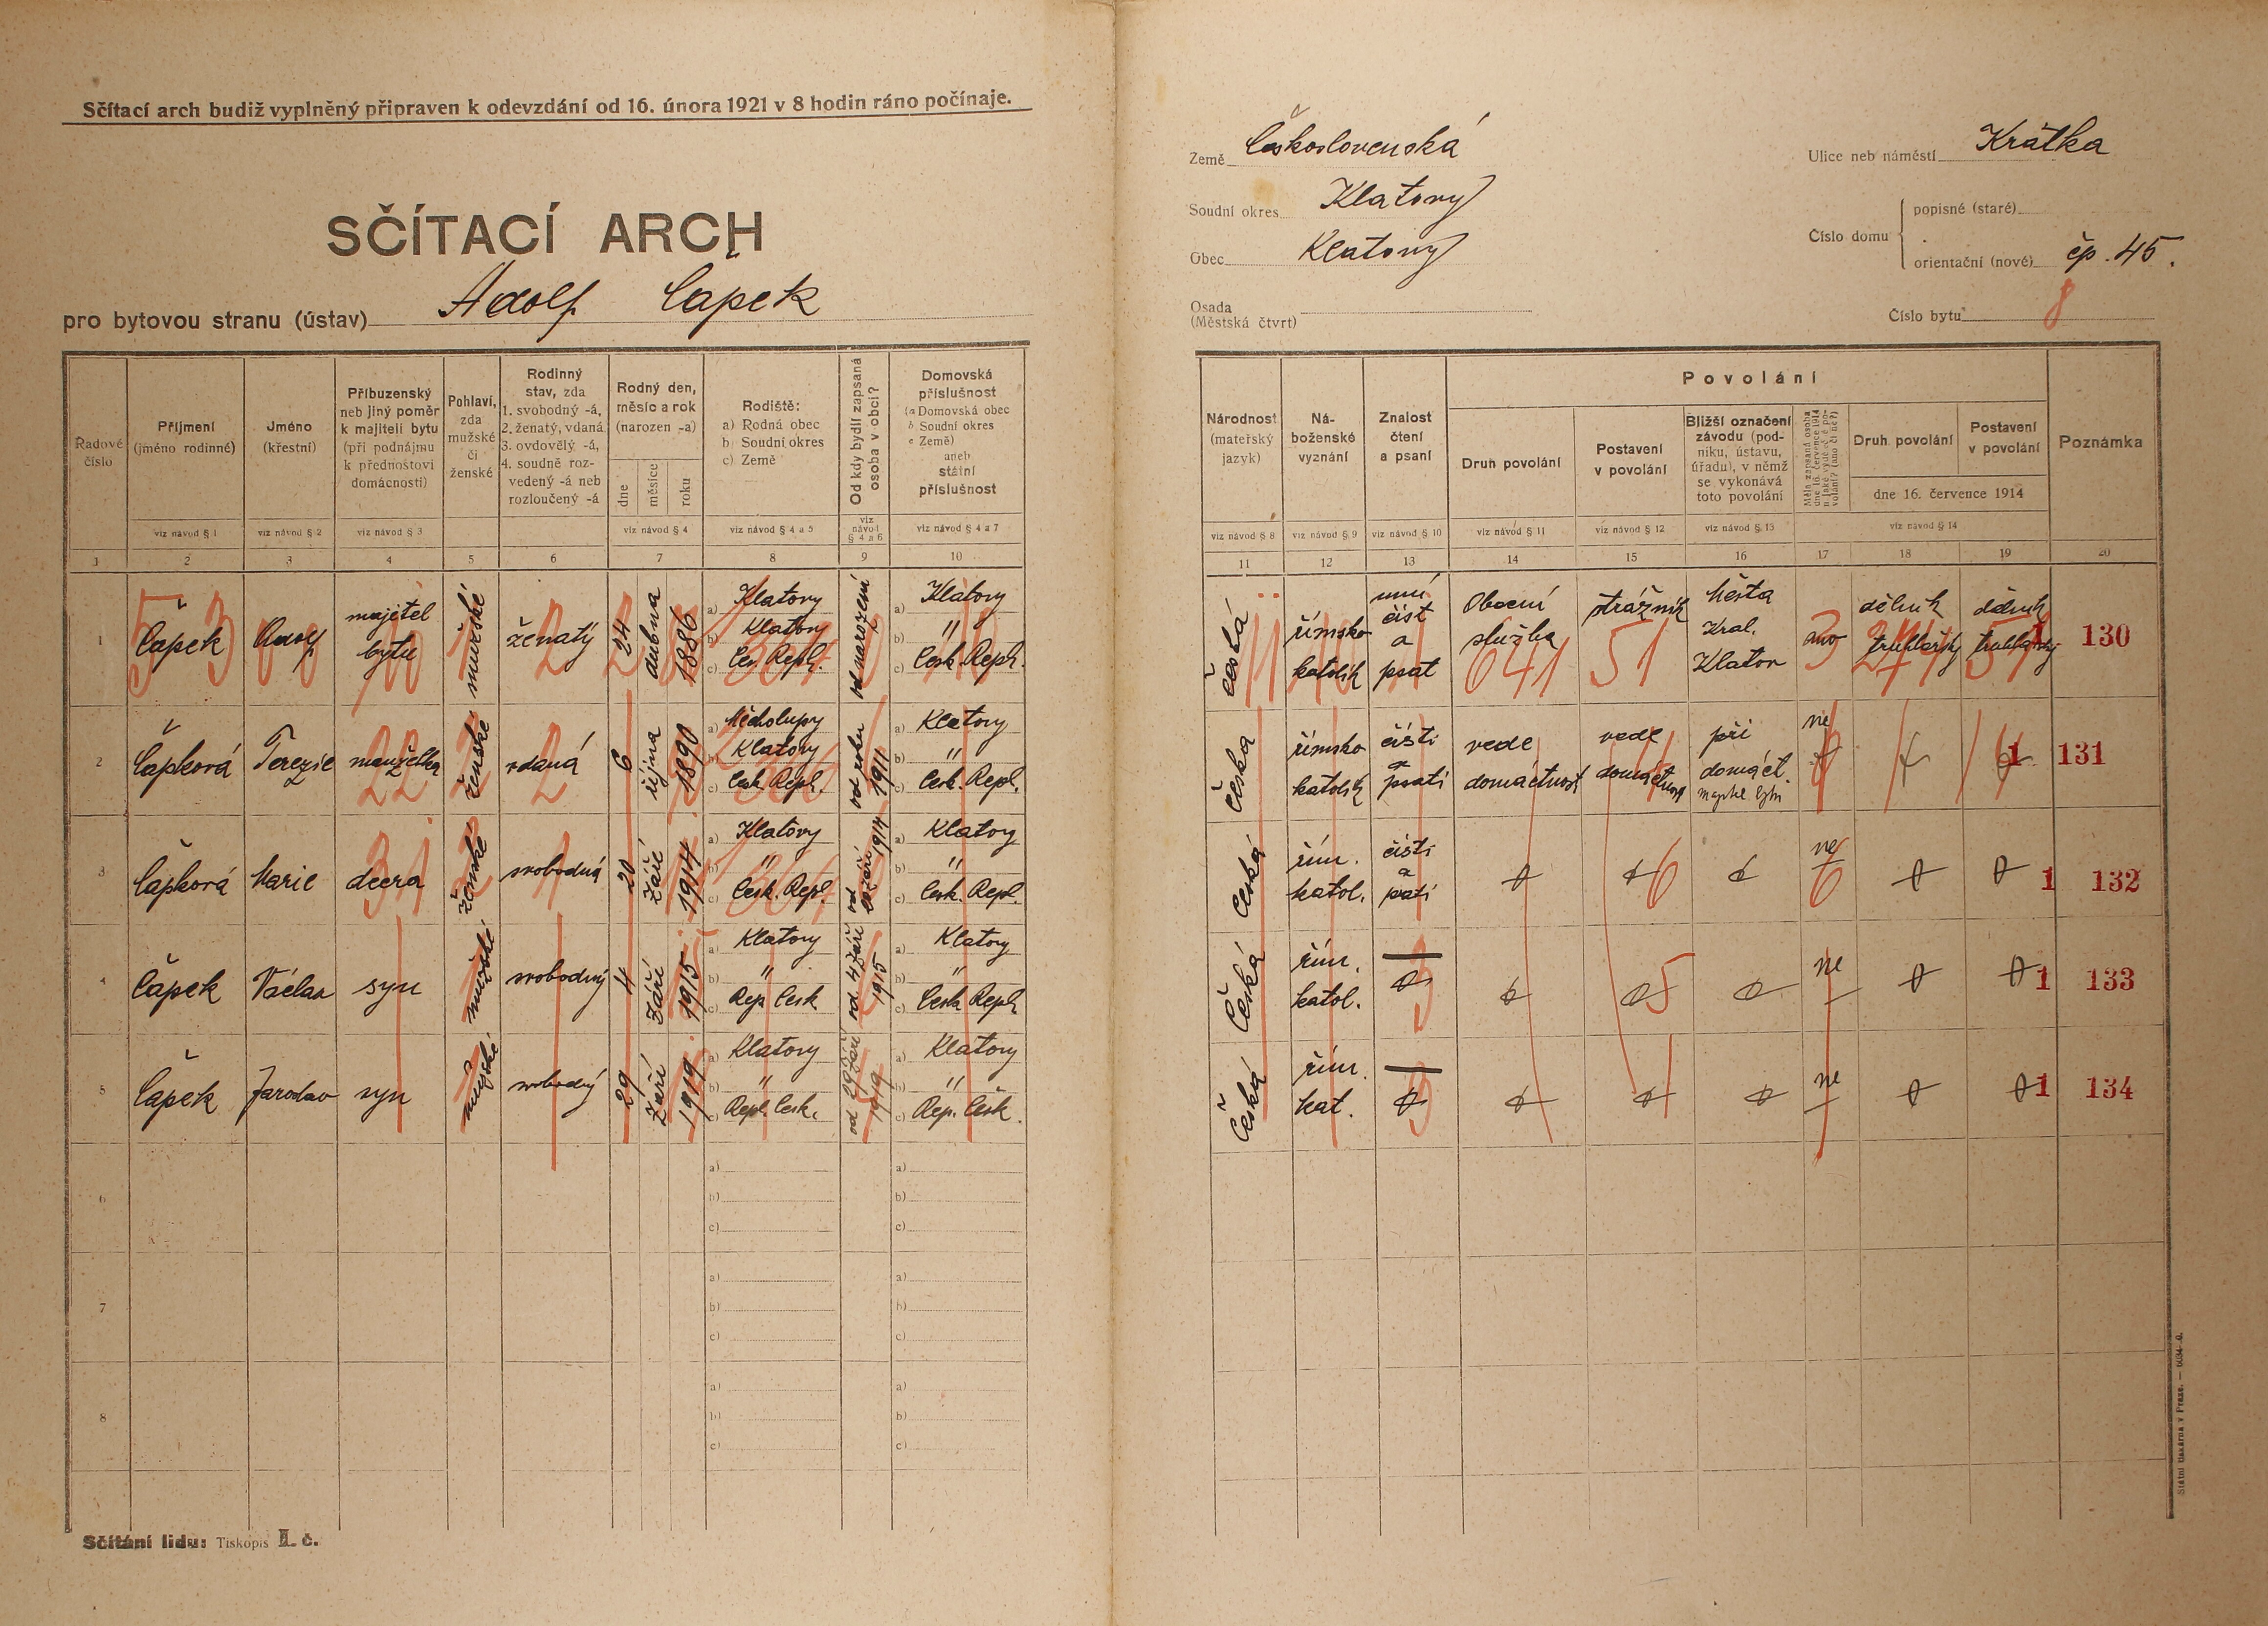 Sčítací arch budiž vyplněný připraven k odevzdání od 16. února 1921 v 8 hodin ráno počínaje.
SČÍTACÍ ARCH
pro bytovou stranu (ústav) Adolf Čapek
Země Československá
Soudní okres Klatovy
Obec Klatovy
Osada
(Městská čtvrt)
Ulice neb náměstí Krátka
Číslo domu
popisné (staré)
orientační (nové) čp. 45.
Číslo bytu 8
Řadové číslo
Příjmení (jméno rodinné)
Jméno (křestní)
Příbuzenský neb jiný poměr k majiteli bytu (při podnájmu k přednostovi domácnosti)
Pohlaví, zda mužské či ženské
Rodinný stav, zda 1. svobodný -á, 2. ženatý, vdaná 3. ovdovělý -á, 4. soudně rozvedený -á neb rozloučený -á
Rodný den, měsíc a rok (narozen -a)
dne měsíce roku
Rodiště: a) Rodná obec b) Soudní okres c) Země
Od kdy bydlí zapsaná osoba v obci?
Domovská příslušnost (a Domovská obec b Soudní okres c Země) aneb státní příslušnost
Národnost (mateřský jazyk)
Náboženské vyznání
Znalost čtení a psaní
Povolání
Druh povolání
Postavení v povolání
Bližší označení závodu (podniku, ústavu, úřadu), v němž se vykonává toto povolání
Druh povolání
Postavení v povolání
dne 16. července 1914
Poznámka
viz návod § 1
viz návod § 2
viz návod § 3
viz návod § 4
viz návod § 4 a 5
viz návod § 4 a 6
viz návod § 4 a 7
viz návod § 8
viz návod § 9
viz návod § 10
viz návod § 11
viz návod § 12
viz návod § 13
viz návod § 14
1 2 3 4 5 6 7 8 9 10 11 12 13 14 15 16 17 18 19 20
1 Čapek Adolf majitel bytu mužské ženatý 24 dubna 1886 a) Klatovy b) Klatovy c) Čes. Repl. od narození a) Klatovy b) " c) Česk. Repl. česká římsko katolík umí číst a psat Obecní služba strážník Města Král. Klatov ano dělník truhlářský dělník truhlářský 130
2 Čapková Terezie manželka ženské vdaná 6 října 1890 a) Měcholupy b) Klatovy c) Česk. Repl. od roku 1911 a) Klatovy b) " c) Česk. Repl. česka římsko katolík čísti a psati vede domáctnost vede domáctnost při domáct. majitele bytu ne 1 131
3 Čapková Marie dcera ženské svobodná 20 září 1914 a) Klatovy b) " c) Česk. Repl. od 20 září 1914 a) Klatovy b) " c) Česk. Repl. česká řím. katol. čísti a psati ne 1 132
4 Čapek Václav syn mužské svobodný 4 září 1915 a) Klatovy b) " c) Rep. Česk. od 4 září 1915 a) Klatovy b) " c) Česk. Repl. Česká řím. katol. ne 1 133
5 Čapek Jaroslav syn mužské svobodný 29 září 1919 a) Klatovy b) " c) Repl. Česk. od 29 září 1919 a) Klatovy b) " c) Rep. Česk. Česká řím. kat. ne 1 134
6 a) b) c) a) b) c)
7 a) b) c) a) b) c)
8 a) b) c) a) b) c)
Sčítání lidu: Tiskopis II. č.
Státní tiskárna v Praze.